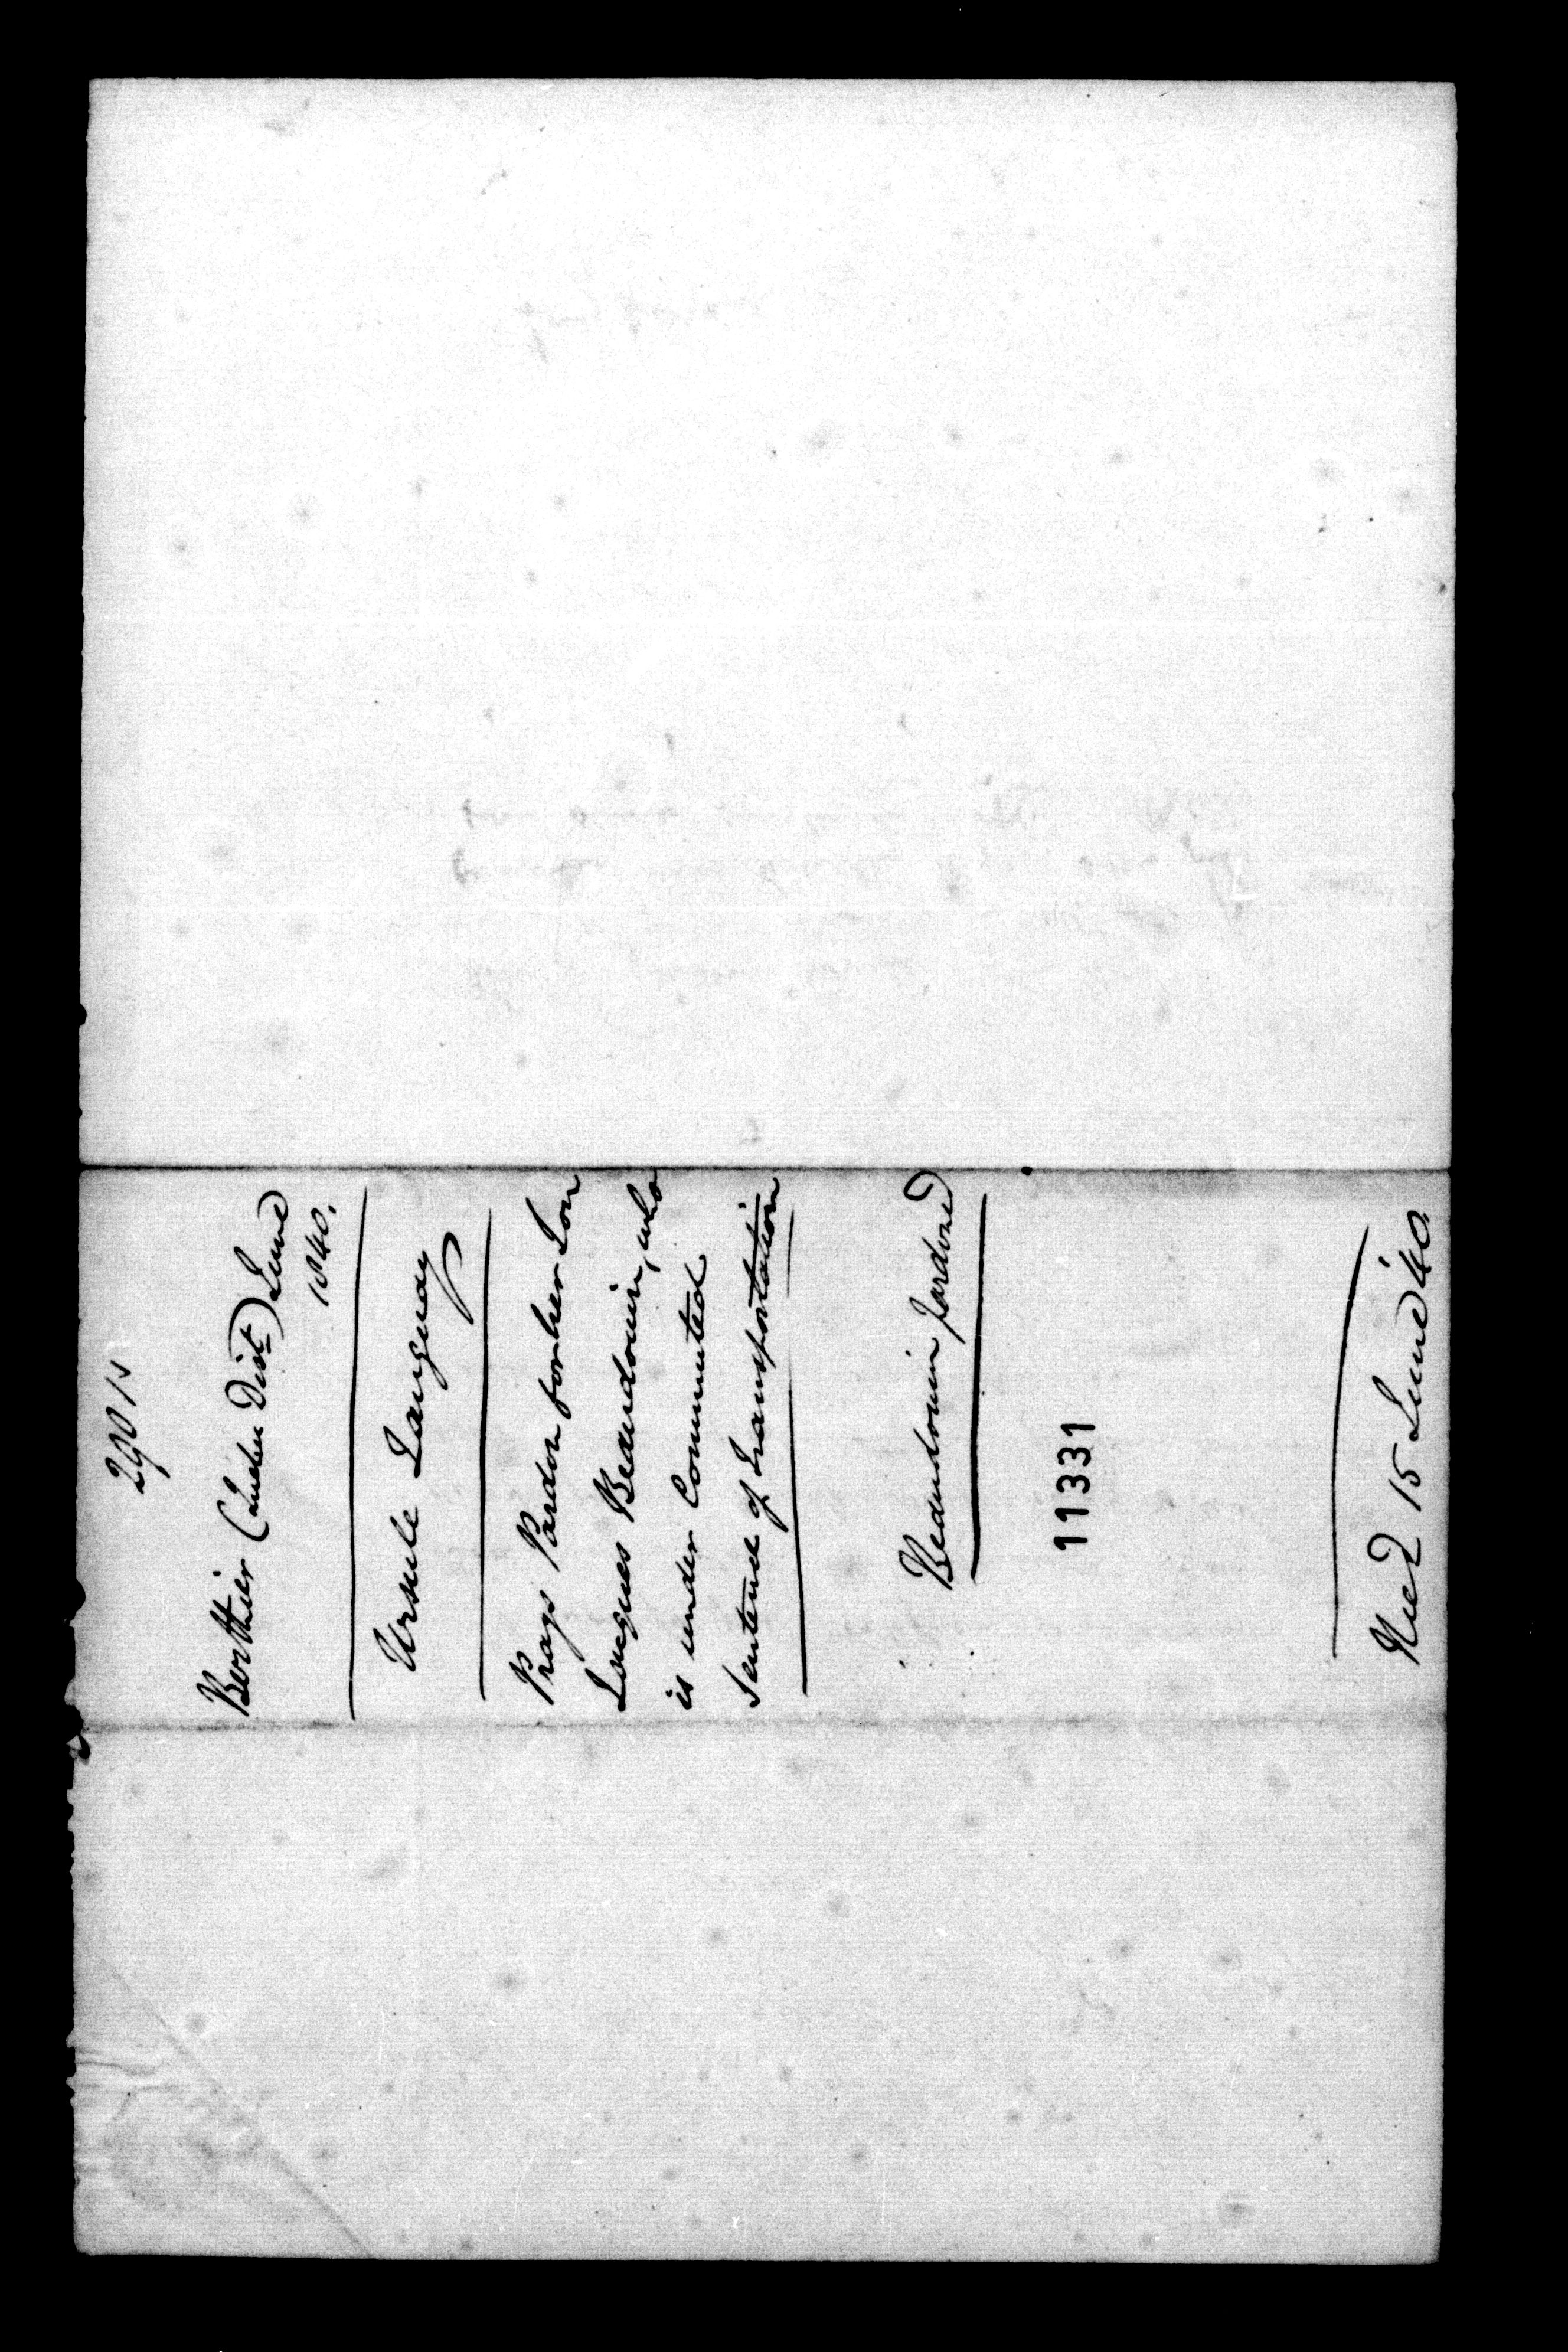 Berthier (Quebec Dist.) June
1840.
Ursule Languay
Prays Pardon for her Son
Jacques Beaudouin, who
is under Commuted
Sentence of Transportation
Beaudouin pardoned
11331
Rec'd 15 June '40.